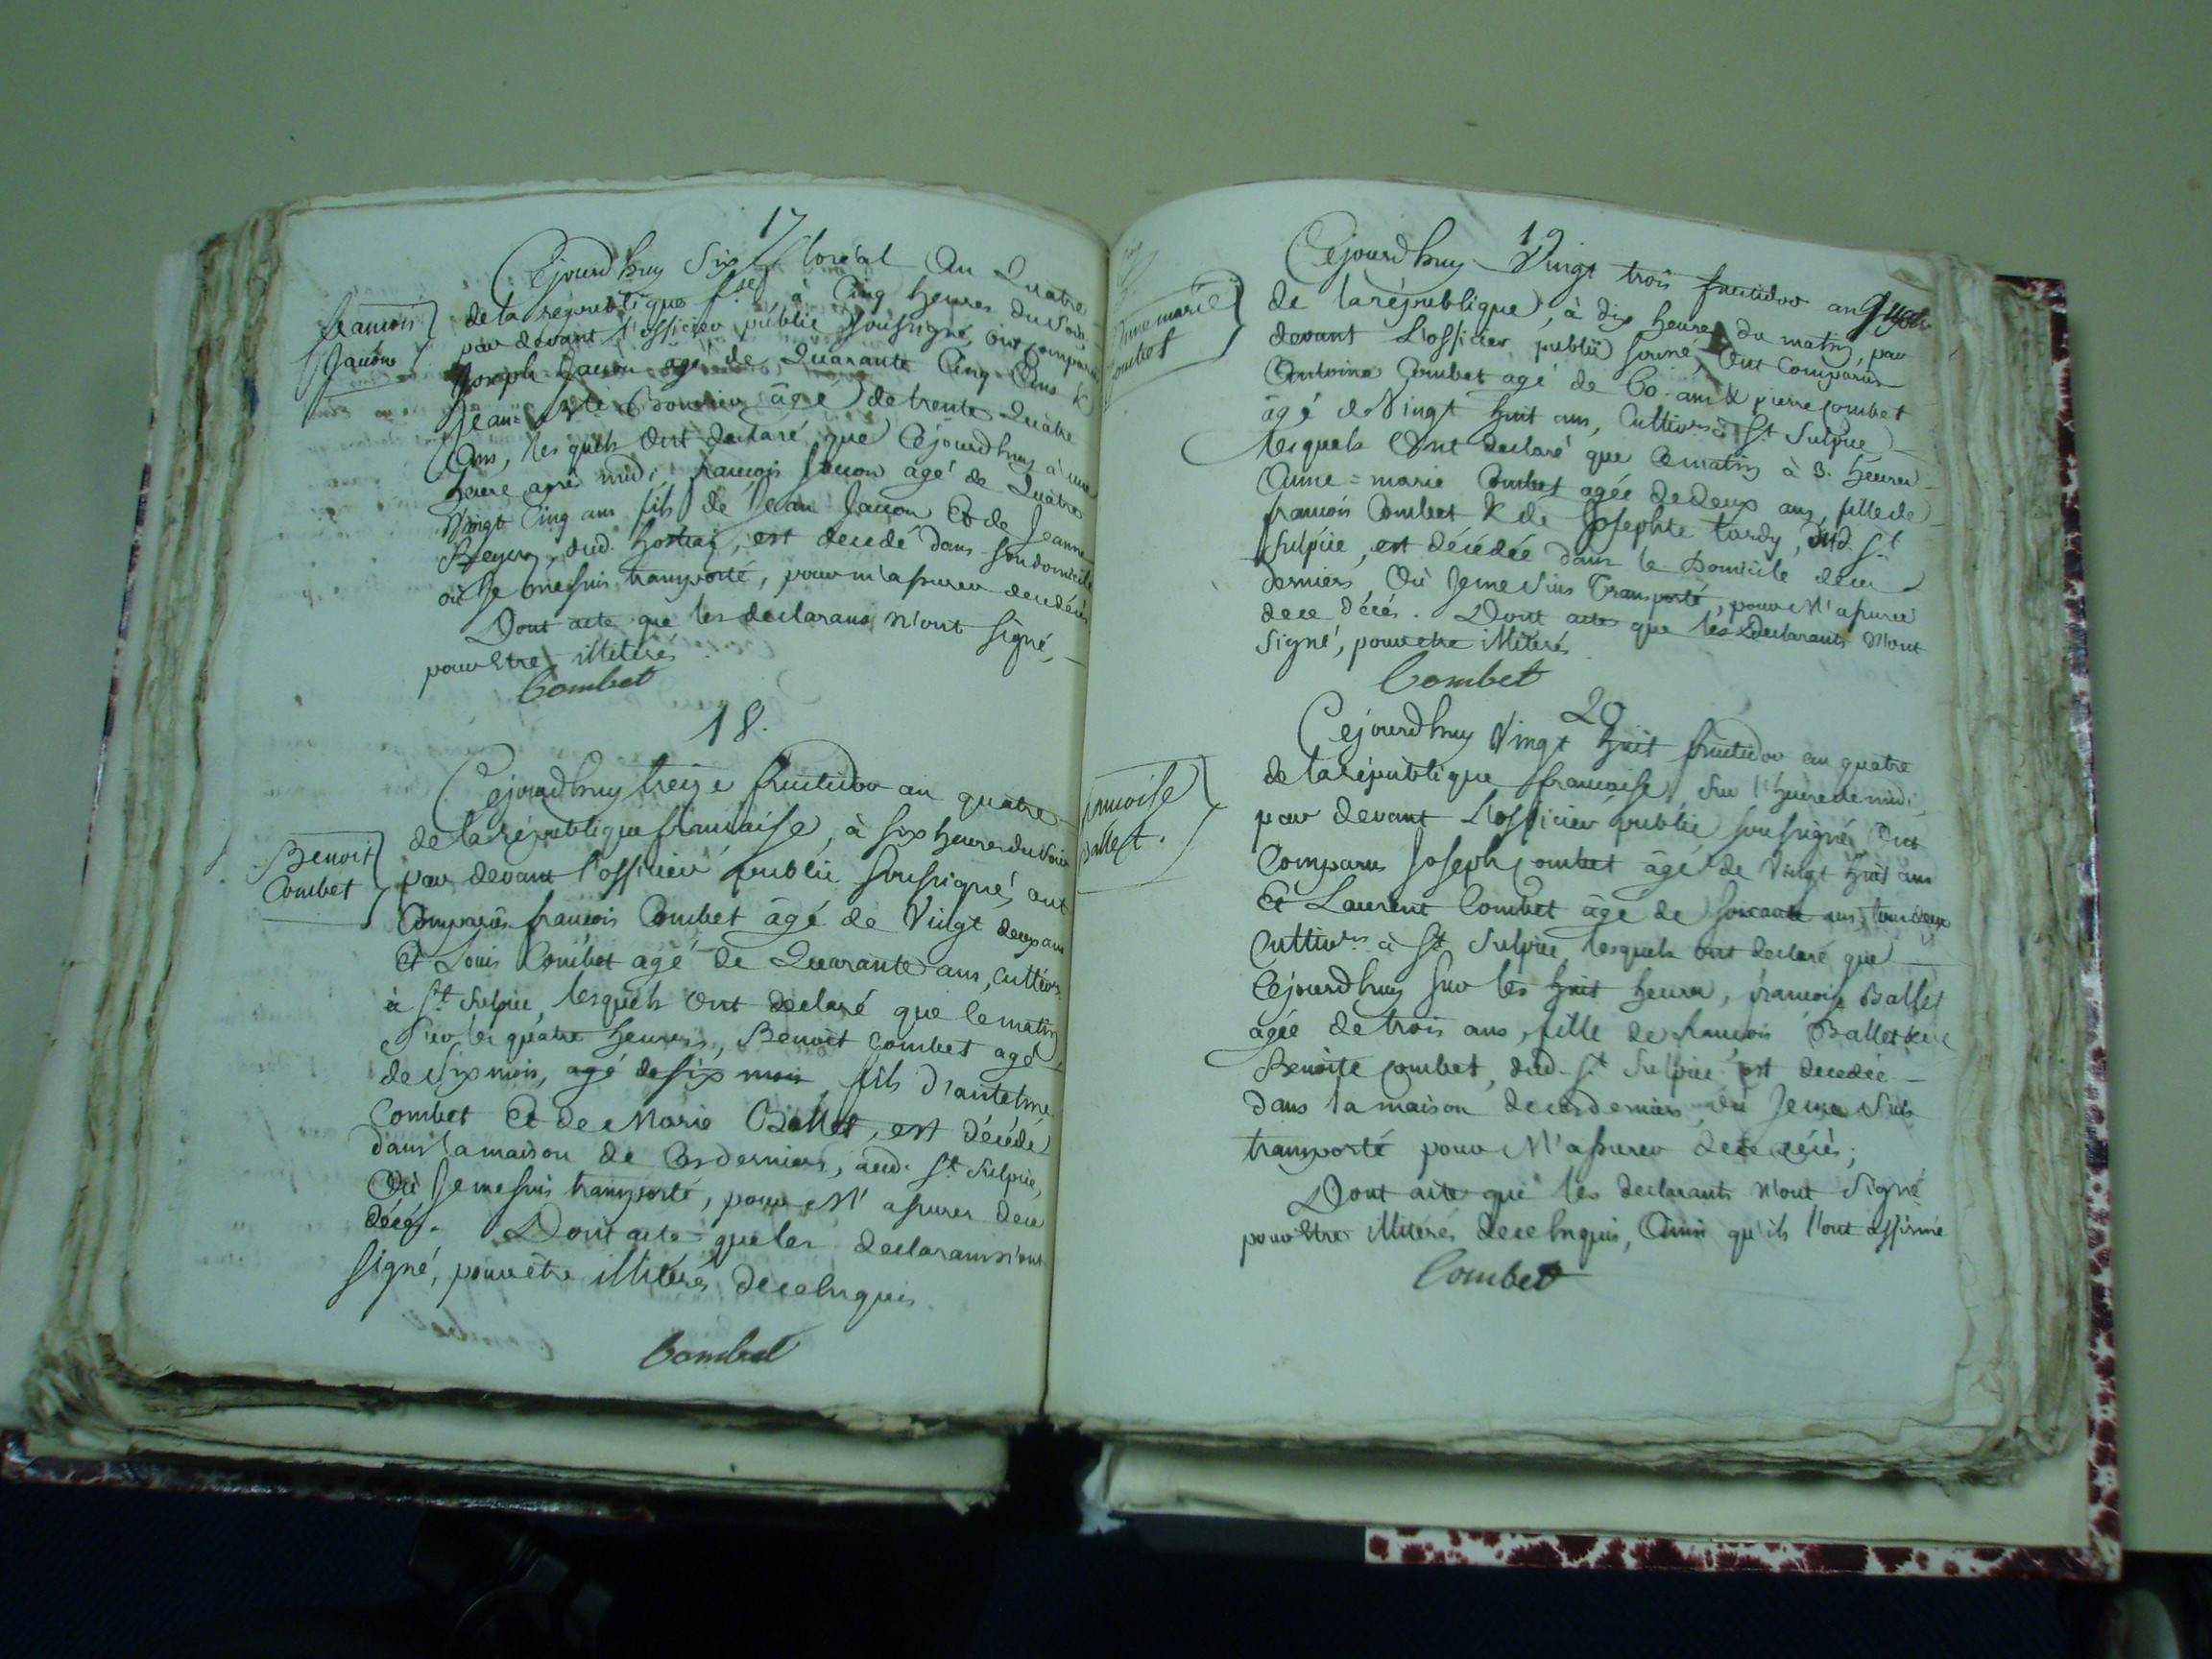 17
Cejourd'huy Six floréal An Quatre
de la republique f.se à Cinq heures du Soir,
par devant l'officier publie Soussigné, ont comparu
Joseph Jacon agé de Quarante Cinq Ans &
Jean-B.te âgé de trente Quatre
Ans, lesquels Ont declaré que Cejourd'huy à une
heure après midi francois Jacon âgé de Quatre
Vingt Cinq ans fils de Jean Jacon Et de Jeanne
dud. hostiaz, est decedé dans son domicile
où Je me suis transporté, pour m'assurer de ce décès
Dont acte que les declarans n'ont signé,
pour Etre illiterés
Combet
francois
Jacon
18.
Cejourd'huy treize fructidor an quatre
de la république francaise, à six heures du Soir
par devant l'officier publie soussigné, ont
Comparus francois Combet âgé de Vingt deux ans
Et Louis Combet agé de Quarante ans, cultivrs
à St. Sulpice, lesquels Ont declaré que ce matin
Sur les quatre heures, Benoit Combet agé
de Six mois, agé de six mois fils d'antelme
Combet Et de Marie Ballet, est décédé
dans la maison de Ces derniers, aud. St. Sulpice,
Où Je me suis transporté, pour M'assurer de ce
décés. Dont acte que les declarans n'ont
signé, pour être illiterés de ce Enquis.
Combet
Benoit
Combet
19
Cejourd'huy Vingt trois fructidor an quatre
de la république, à dix heures du matin, par
devant L'officier publie souné, Ont Comparûs
Antoine Combet agé de 60 ans & pierre Combet
âgé de Vingt huit ans, Cultivrs à St Sulpice
lesquels Ont declaré que Ce matin à 3. heures
Anne=marie Combet agée de deux ans, fille de
francois Combet & de Josephte tardy, dud. St
Sulpice, est décédée dans le Domicile de ces
derniers Où Je me Suis Transporté, pour M'assurer
de ce décés. Dont acte que les Declarants N'ont
Signé, pour etre illiterés
Combet
Anne marie
Combet
20
Cejourd'huy Vingt huit fructidor an quatre
de la république francaise, sur l'heure de midi,
par devant L'officier publie soussigné, Ont
Comparus Joseph Combet âgé de Vingt huit ans
Et Laurent Combet âgé de soixante ans, tous deux
Cultivrs à St Sulpice, lesquels ont declaré que
Cejourd'huy sur les huit heures, francoise Ballet
agée de trois ans, fille de francois Ballet & de
Benoite Combet, dud. St Sulpice est decedée
dans la maison de ces derniers, où Je me Suis
transporté pour M'assurer de ce décés;
Dont acte que les declarants n'ont Signé
pour Etre illiterés de ce Enquis, Ainsi qu'ils l'ont affirmé
Combet
francoise
Ballet.